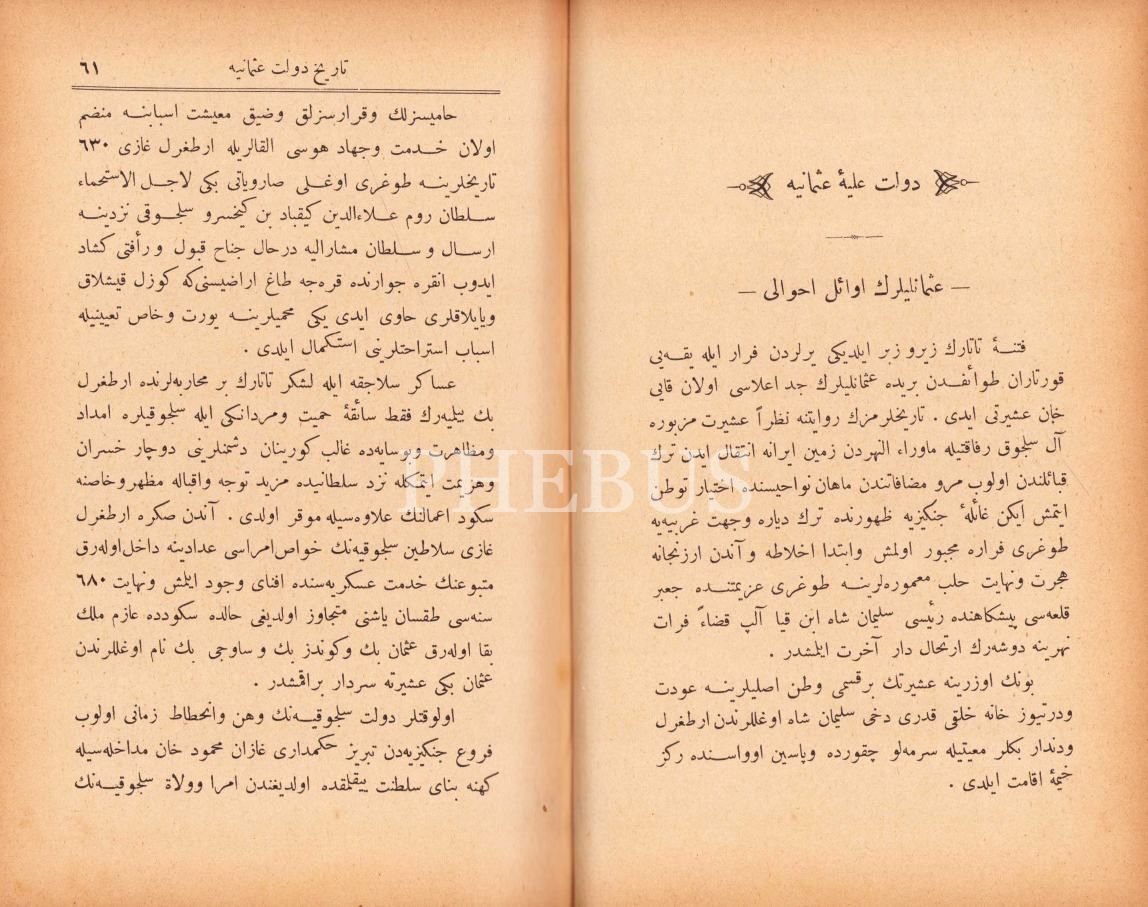 دولت علیهٔ عثمانیه
— عثمانلیلرك اوائل احوالی —
فتنهٔ تاتارك زیر و زبر ایلدیکی یرلردن فرار ایله یقه‌یی
قورتاران طوائفدن بریده عثمانلیلرك جد اعلاسی اولان قایی
خان عشیرتی ایدی . تاریخلرمزك روایتنه نظراً عشیرت مزبوره
آل سلجوق رفاقتیله ماوراء النهردن زمین ایرانه انتقال ایدن ترك
قبائلندن اولوب مرو مضافاتندن ماهان نواحیسنده اختیار توطن
ایتمش ایکن غائلهٔ جنکیزیه ظهورنده ترك دیاره وجهت غربیه‌یه
طوغری فراره مجبور اولمش وابتدا اخلاطه و آندن ارزنجانه
هجرت ونهایت حلب معموره‌لرینه طوغری عزیمتنده جعبر
قلعه‌سی پیشکاهنده رئیسی سلیمان شاه ابن قیا آلپ قضاءً فرات
نهرینه دوشه‌رك ارتحال دار آخرت ایلمشدر .
بونك اوزرینه عشیرتك برقسمی وطن اصلیلرینه عودت
ودرتیوز خانه خلقی قدری دخی سلیمان شاه اوغللرندن ارطغرل
ودندار بکلر معیتیله سرمه‌لو چقورده وپاسین اوواسنده رکز
خیمهٔ اقامت ایلدی .
تاریخ دولت عثمانیه ٦١
حامیسزلك وقرارسزلق وضیق معیشت اسبابنه منضم
اولان خدمت وجهاد هوسی القالریله ارطغرل غازی ٦٣٠
تاریخلرینه طوغری اوغلی صاروباتی بکی لاجل الاستحماء
سلطان روم علاءالدین کیقباد بن کیخسرو سلجوقی نزدینه
ارسال و سلطان مشارالیه درحال جناح قبول و رأفتی کشاد
ایدوب انقره جوارنده قره‌جه طاغ اراضیسنی‌که کوزل قیشلاق
ویایلاقلری حاوی ایدی یکی محمیلرینه یورت وخاص تعیینیله
اسباب استراحتلرینی استکمال ایلدی .
عساکر سلاجقه ایله لشکر تاتارك بر محاربه‌لرنده ارطغرل
بك بیلمیه‌رك فقط سائقهٔ حمیت ومردانکی ایله سلجوقیلره امداد
ومظاهرت وبوسایه‌ده غالب کورینان دشمنلرینی دوچار خسران
وهزیمت ایتمکله نزد سلطانیده مزید توجه واقباله مظهر وخاصنه
سکود اعمالنك علاوه‌سیله موقر اولدی . آندن صکره ارطغرل
غازی سلاطین سلجوقیه‌نك خواص امراسی عدادینه داخل اوله‌رق
متبوعنك خدمت عسکریه‌سنده افنای وجود ایلمش ونهایت ٦٨٠
سنه‌سی طقسان یاشنی متجاوز اولدیغی حالده سکودده عازم ملك
بقا اوله‌رق عثمان بك وکوندز بك و ساوجی بك نام اوغللرندن
عثمان بکی عشیرته سردار براقمشدر .
اولوقتلر دولت سلجوقیه‌نك وهن وانحطاط زمانی اولوب
فروع جنکیزیه‌دن تبریز حکمداری غازان محمود خان مداخله‌سیله
کهنه بنای سلطنت ییقلمقده اولدیغندن امرا وولاة سلجوقیه‌نك
PHEBUS